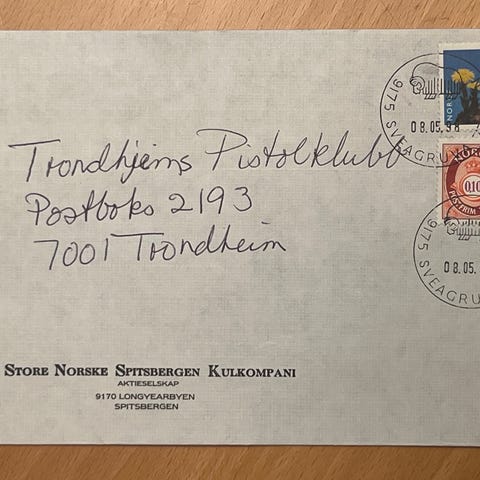 Trondhjems Pistolklubb
Postboks 2193
7001 Trondheim
STORE NORSKE SPITSBERGEN KULKOMPANI
AKTIESELSKAP
9170 LONGYEARBYEN
SPITSBERGEN
9175 SVEAGRUVA
08.05.98
NOR
0,10
9175 SVEAGRU
08.05.